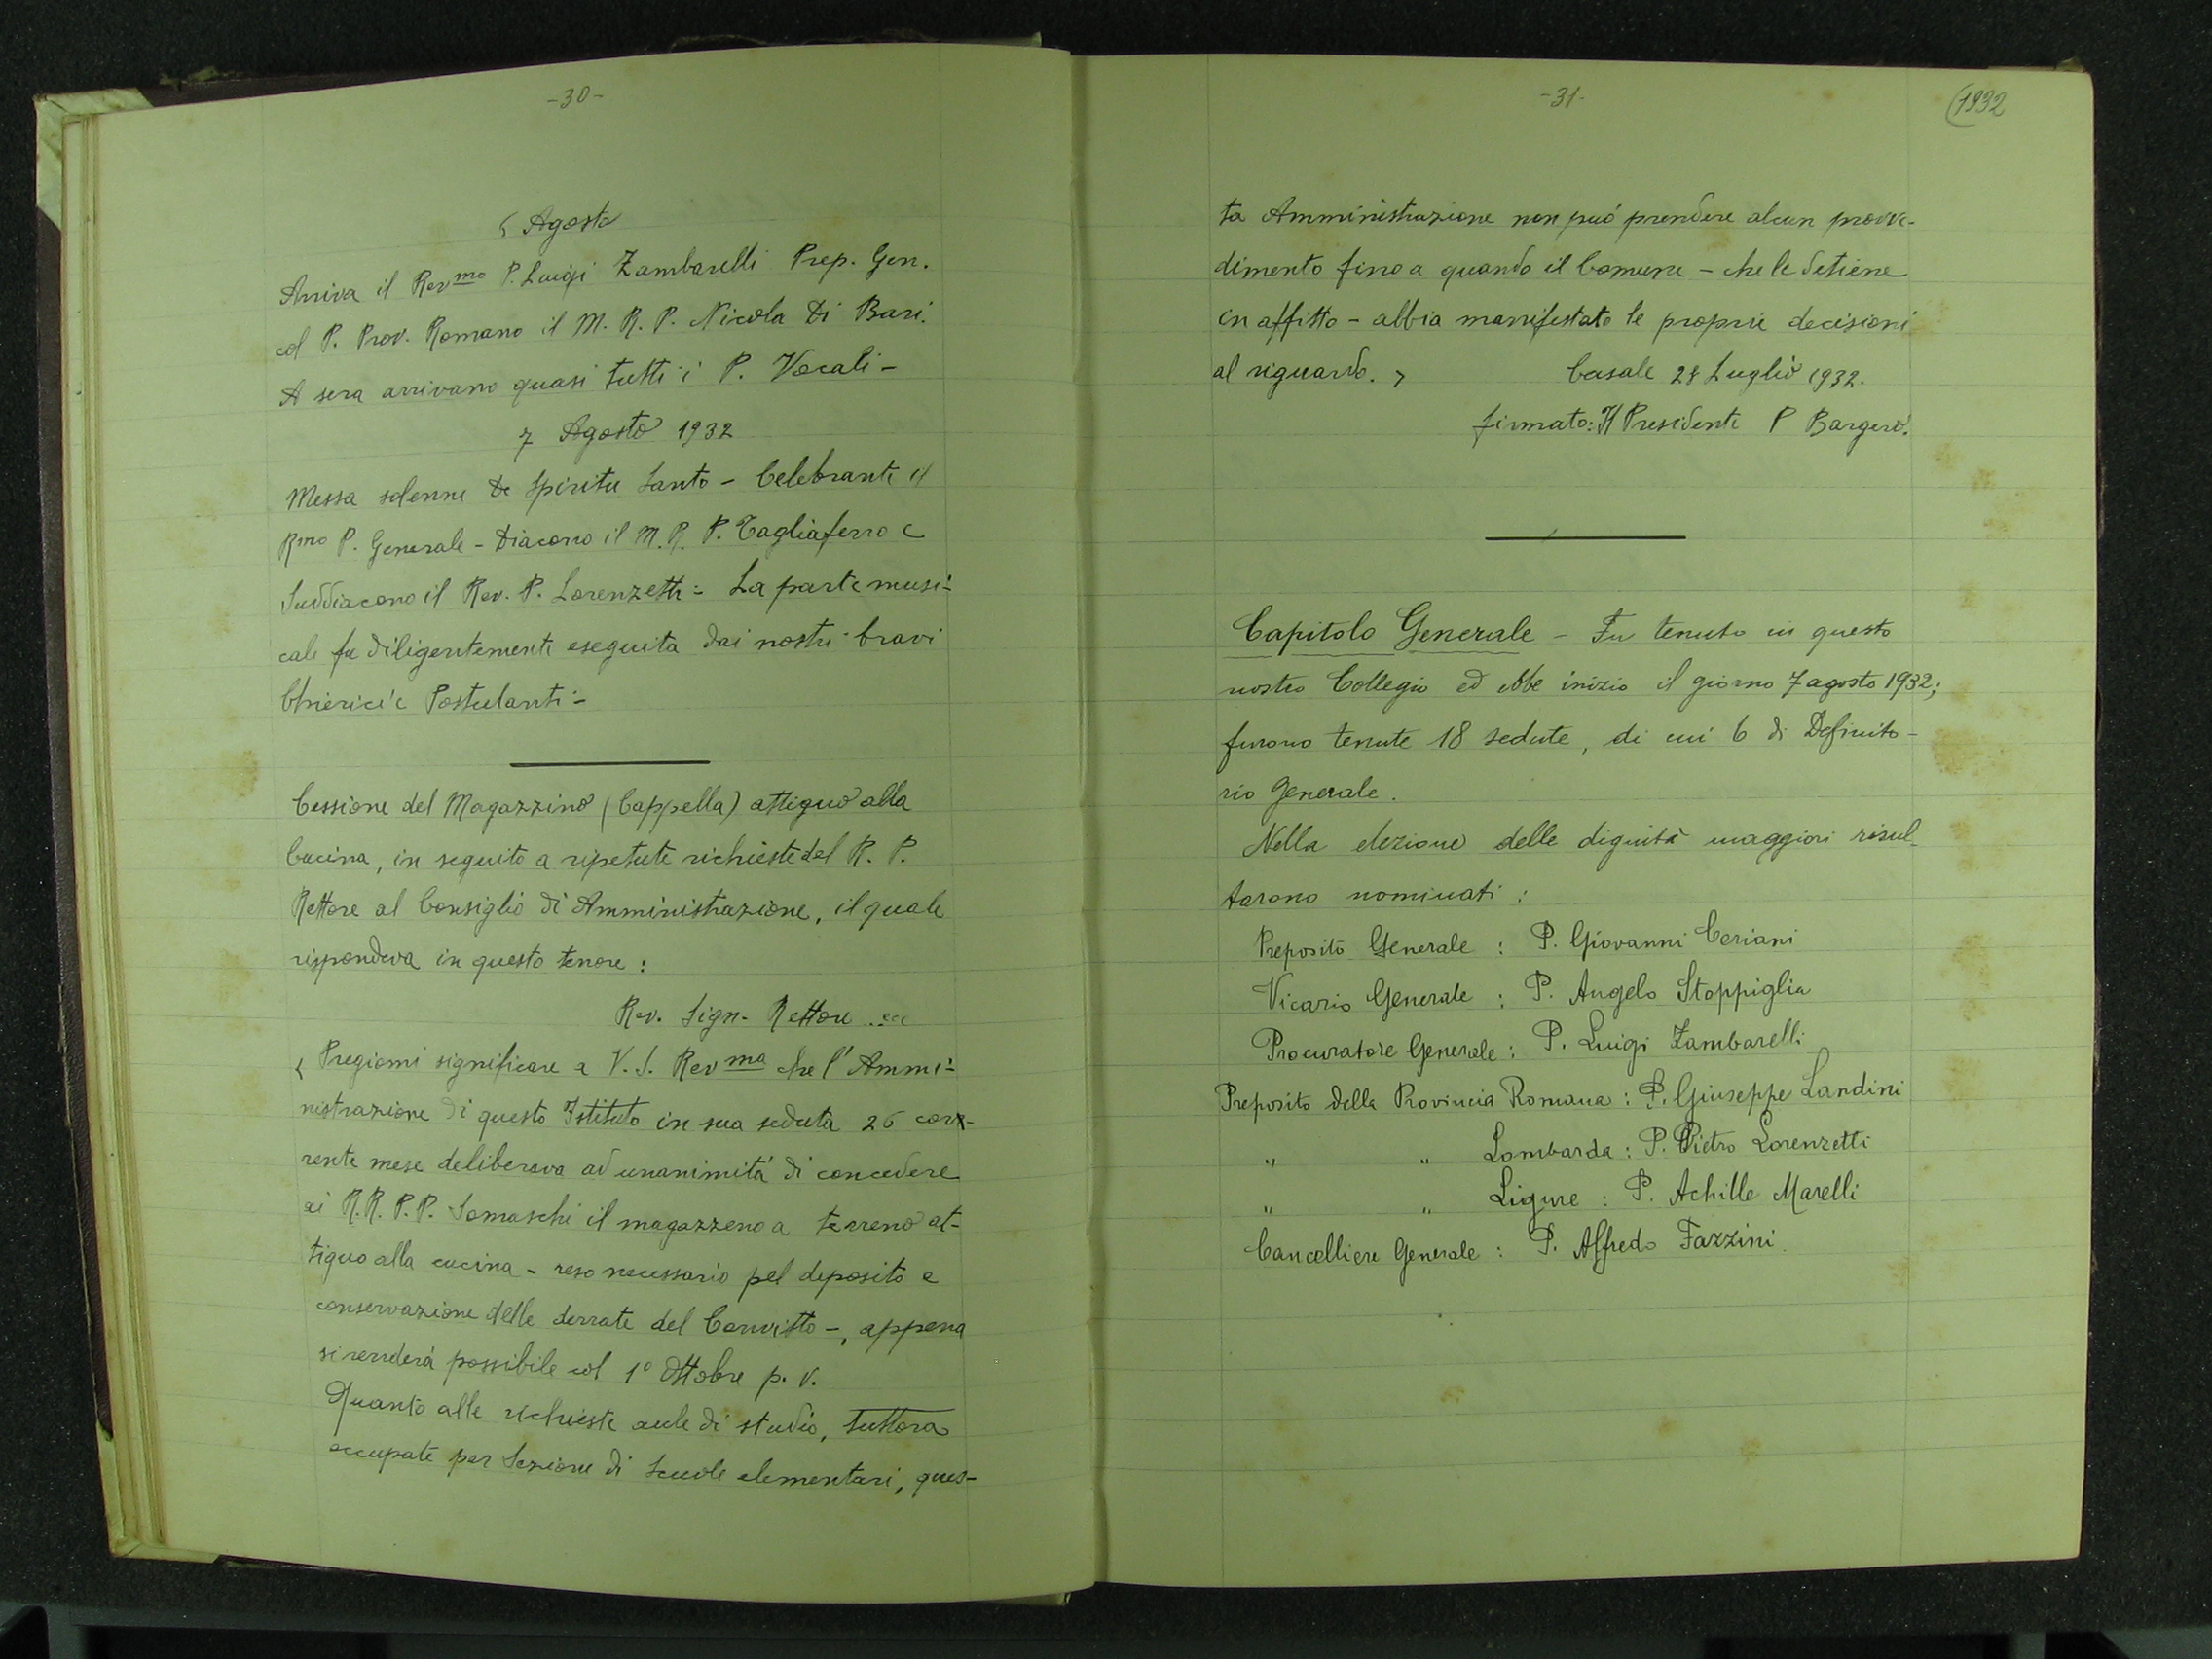 -30-
5 Agosto
Arriva il Revmo P. Luigi Zambarelli Prep. Gen.
col P. Prov. Romano il M. R. P. Nicola Di Bari.
A sera arrivano quasi tutti i P. Vocali -
7 Agosto 1932
Messa solenne de Spiritu Santo - Celebrante il
Rmo P. Generale - Diacono il M. R. P. Tagliaferro e
Suddiacono il Rev. P. Lorenzetti - La parte musi-
cale fu diligentemente eseguita dai nostri bravi
Chierici e Postulanti -
Cessione del Magazzino (Cappella) attiguo alla
Cucina, in seguito a ripetute richieste del R. P.
Rettore al Consiglio di Amministrazione, il quale
rispondeva in questo tenore:
Rev. Sign. Rettore ..ecc
< Pregiomi significare a V. S. Revma che l'Ammi-
nistrazione di questo Istituto in sua seduta 26 cor-
rente mese deliberava ad unanimità di concedere
ai R.R. P.P. Somaschi il magazzeno a terreno at-
tiguo alla cucina - reso necessario pel deposito e
conservazione delle derrate del Convitto -, appena
si renderà possibile col 1° Ottobre p. v.
Quanto alle richieste aule di studio, tuttora
occupate per Sezione di Scuole elementari, ques-
-31-
(1932
ta Amministrazione non può prendere alcun provve-
dimento fino a quando il Comune - che le detiene
in affitto - abbia manifestato le proprie decisioni
al riguardo. > Casale 28 Luglio 1932.
firmato: Il Presidente P Bargero.
Capitolo Generale - Fu tenuto in questo
nostro Collegio ed ebbe inizio il giorno 7 agosto 1932;
furono tenute 18 sedute, di cui 6 di Definito-
rio Generale.
Nella elezione delle dignità maggiori risul-
tarono nominati :
Preposito Generale : P. Giovanni Ceriani
Vicario Generale : P. Angelo Stoppiglia
Procuratore Generale : P. Luigi Zambarelli
Preposito della Provincia Romana : P. Giuseppe Landini
" " Lombarda : P. Pietro Lorenzetti
" " Ligure : P. Achille Marelli
Cancelliere Generale : P. Alfredo Fazzini.